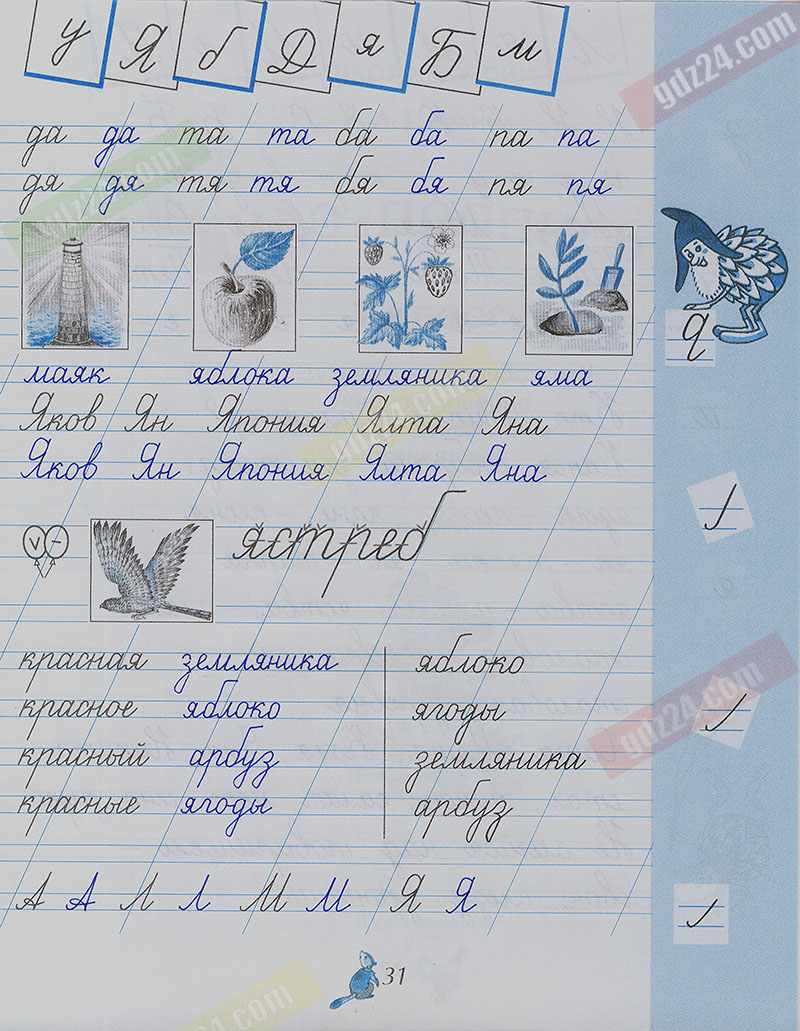 у Я б Д я Б м
да да та та ба ба па па
дя дя тя тя бя бя пя пя
маяк яблока земляника яма
Яков Ян Япония Ялта Яна
Яков Ян Япония Ялта Яна
ястреб
красная земляника яблоко
красное яблоко ягоды
красный арбуз земляника
красные ягоды арбуз
А А Л Л М М Я Я
31
gdz24.com
gdz24.com
gdz24.com
gdz24.com
gdz24.com